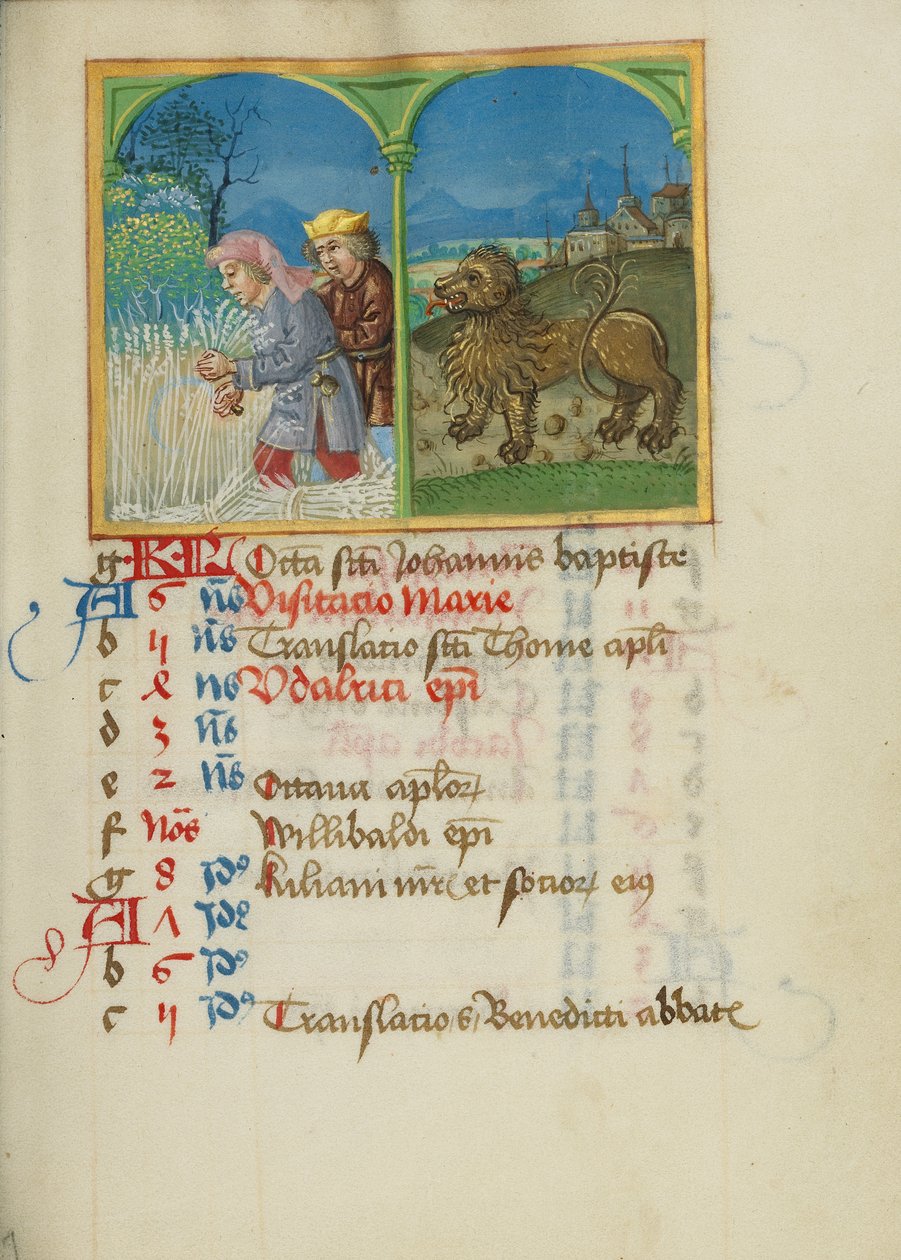 g KL Octa sti Johannis baptiste
A 6 ns Visitacio Marie
b 4 ns Translacio sti Thome apli
c 4 ns Vdalrici epi
d 3 ns
e 2 ns Octaua aplor
f Nos Willibaldi epi
g 8 ýd9 Kiliani mr et socior ei9
A 7 yd
b 6 yd9
c 4 yd9 Translacio s Benedicti abbat